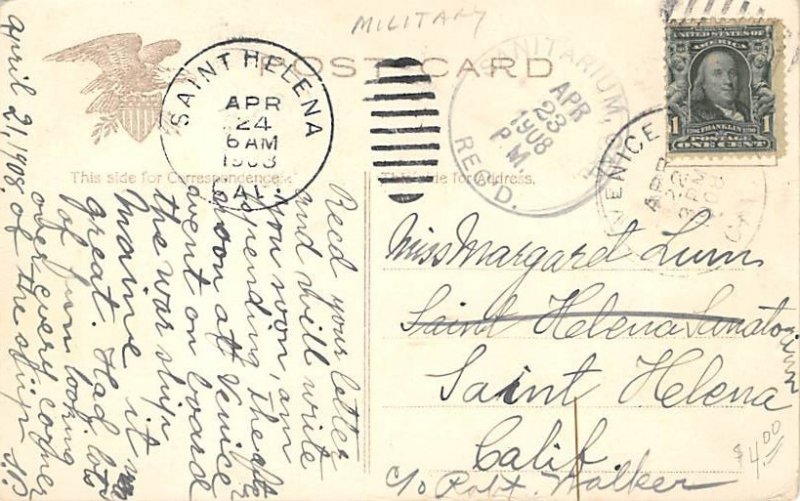 MILITARY
POST CARD
SAINT HELENA
APR
24
6 AM
1908
CAL.
SANITARIUM,
APR
23
1908
P.M.
REC'D.
VENICE
APR
22
PM
1908
CAL.
UNITED STATES OF
AMERICA
FRANKLIN
1 POSTAGE 1
ONE CENT
This side for Correspondence.
This side for Address.
April 21, 1908.
Recd your letter
and will write
you soon, am
spending the aft
ernoon at Venice
went on board
the war ship
Maine it
great. Had lots
of fun looking
over every corner
of the ship
Miss Margaret Lum
Saint Helena Sanatorium
Saint Helena
Calif.
c/o Robt. Walker
$4.00